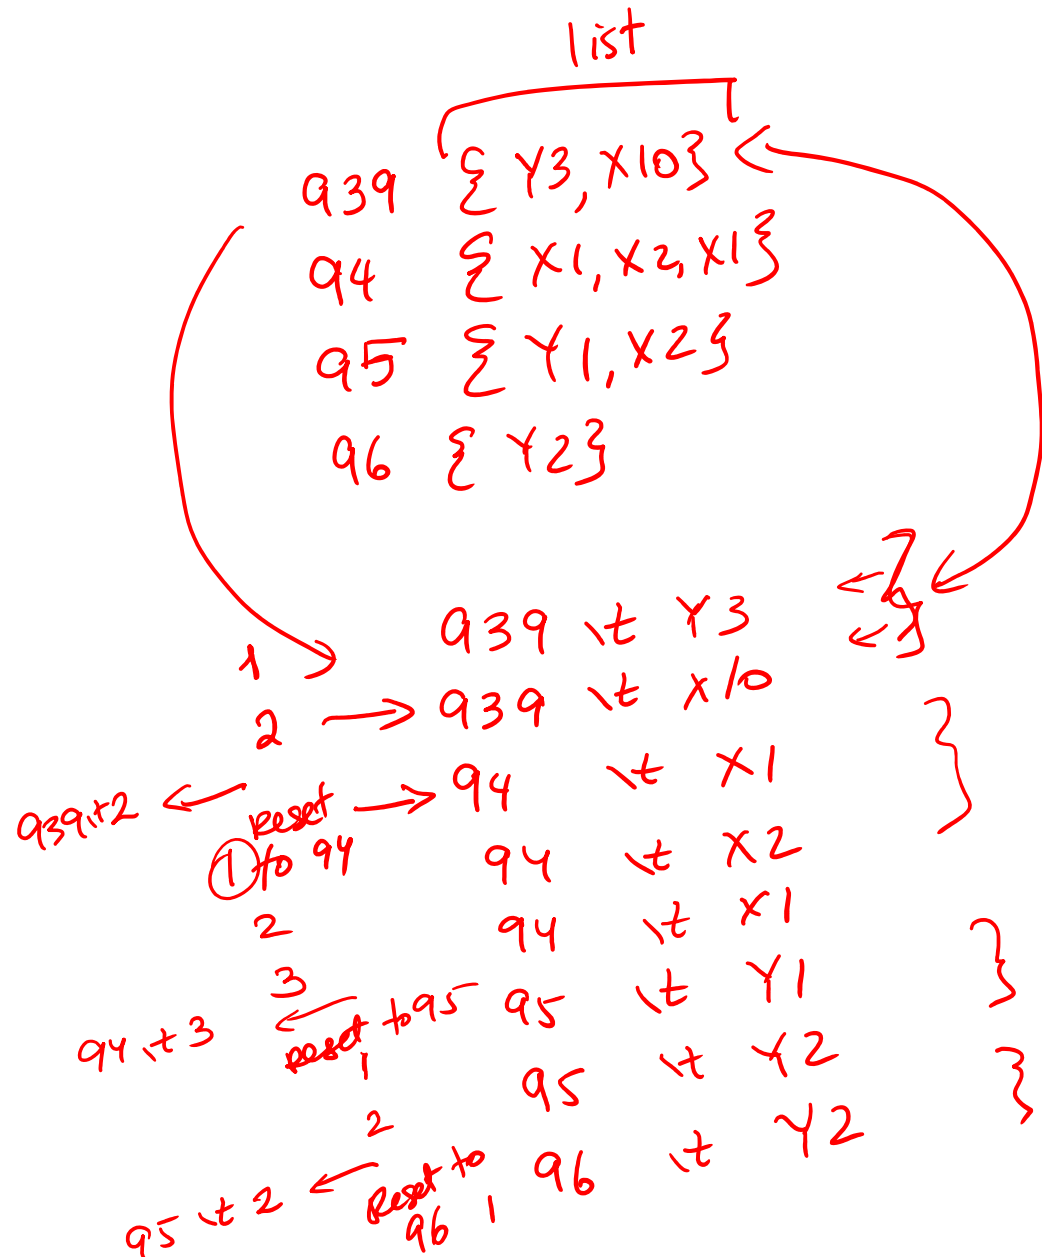 list
939 { Y3, X10}
94 { X1, X2, X1}
95 { Y1, X2}
96 { Y2}
1 939 \t Y3
2 939 \t X10
939\t2 reset 94 \t X1
1 to 94 94 \t X2
2 94 \t X1
3 95 \t Y1
94 \t 3 reset to 95
1 95 \t Y2
2 96 \t Y2
95 \t 2 Reset to
96 1